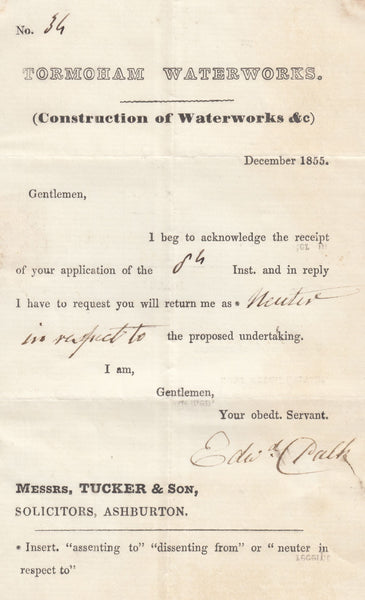 No. 34
TORMOHAM WATERWORKS.
(Construction of Waterworks &c)
December 1855.
Gentlemen,
I beg to acknowledge the receipt
of your application of the 8th Inst. and in reply
I have to request you will return me as * Neuter
in respect to the proposed undertaking.
I am,
Gentlemen,
Your obedt. Servant.
Edwd. Palk
Messrs, TUCKER & Son,
SOLICITORS, ASHBURTON.
* Insert. "assenting to" "dissenting from" or " neuter in
respect to"